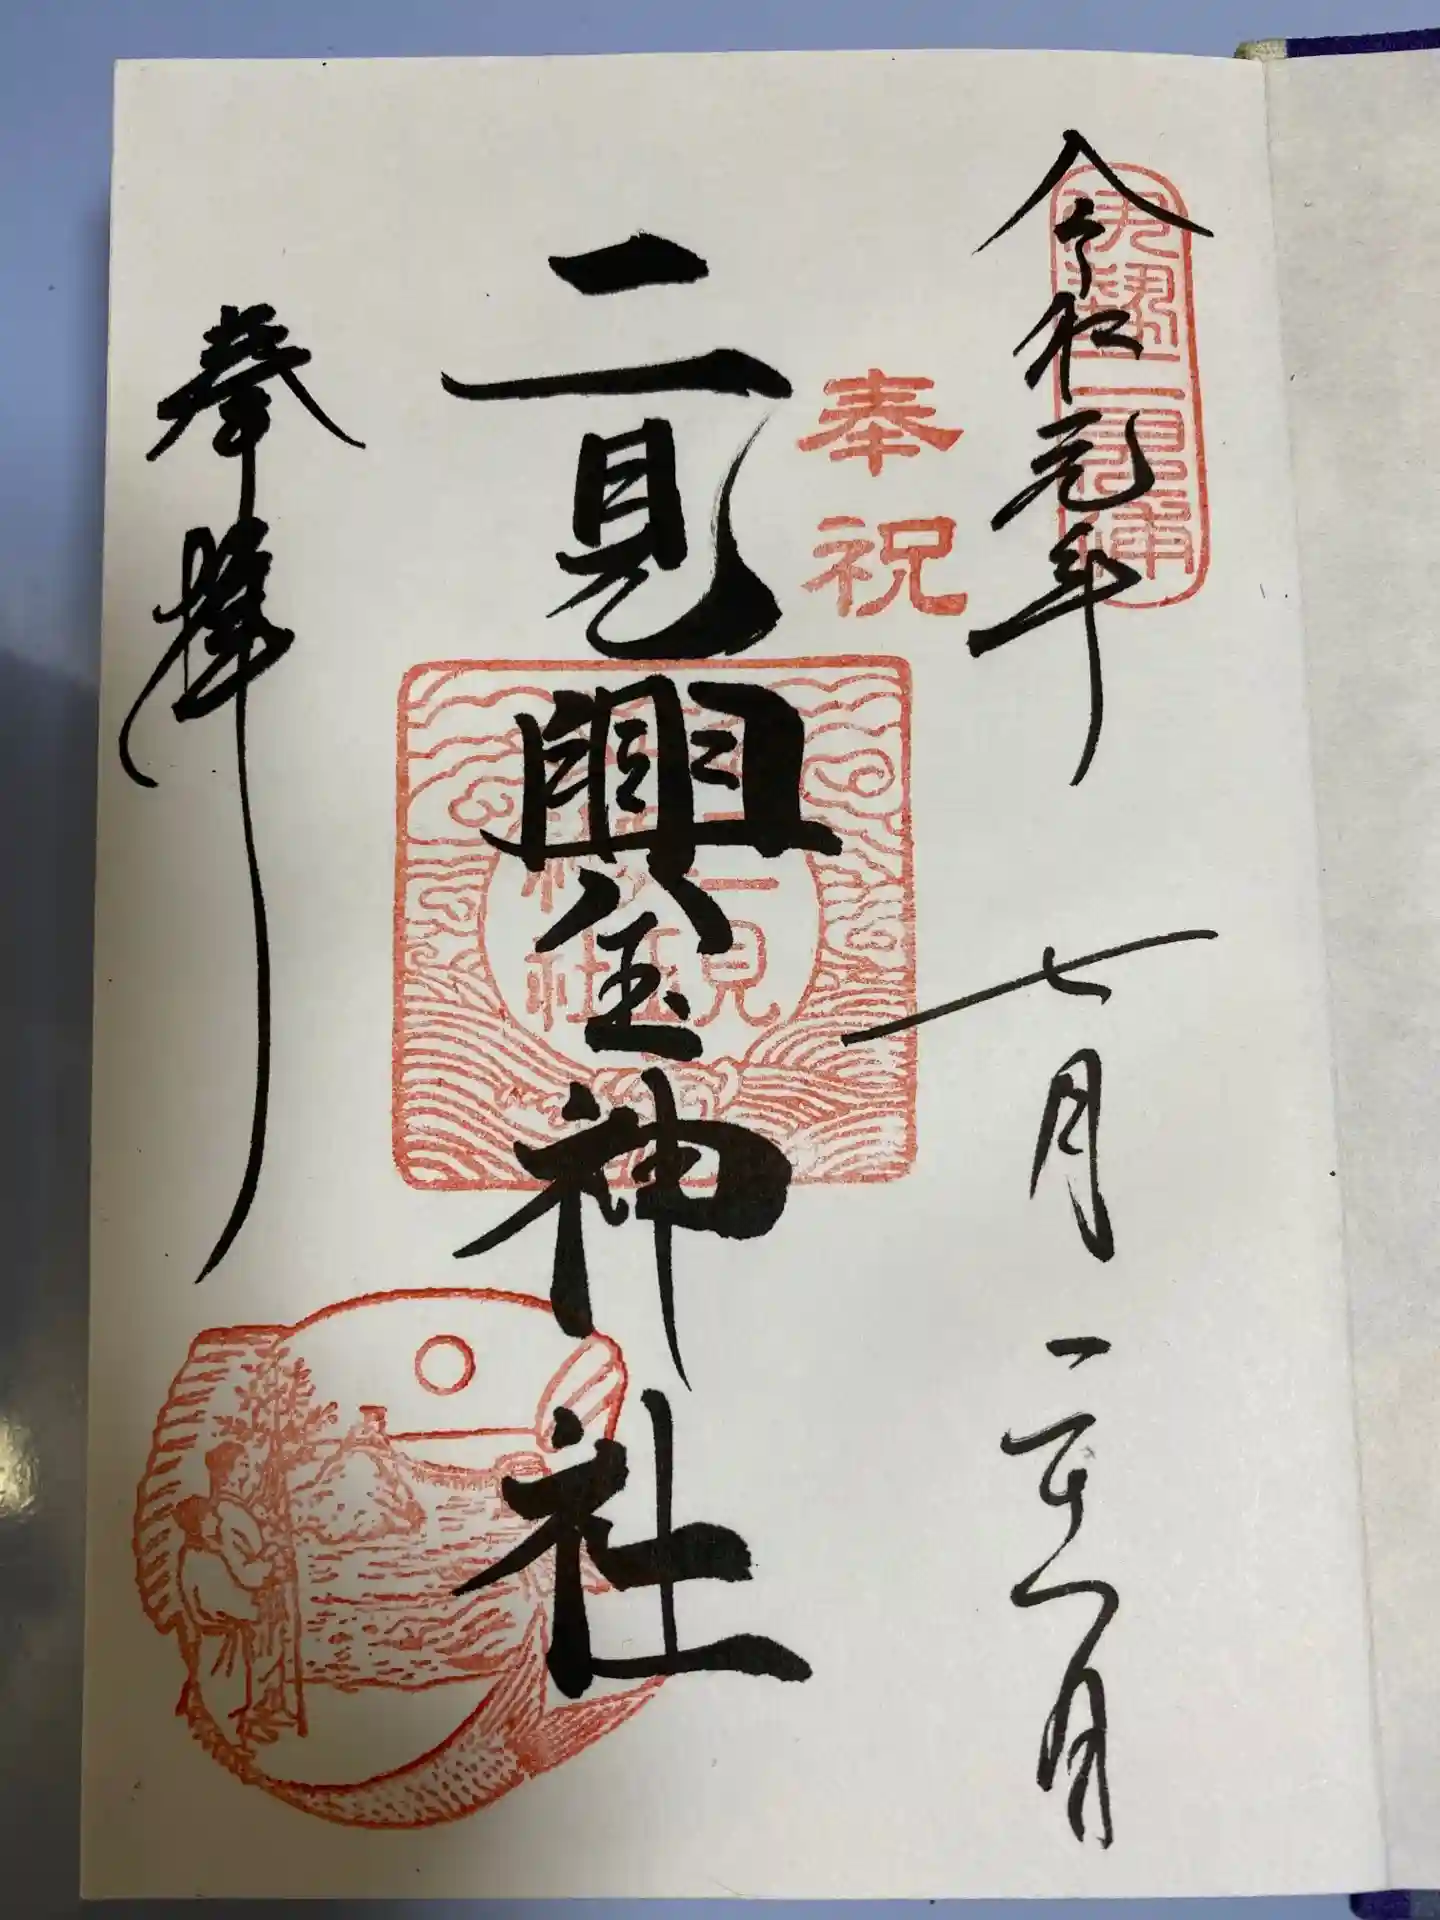 伊勢二見浦
令和元年七月二十一日
奉祝
二見興玉神社
二見興玉神社
奉拝